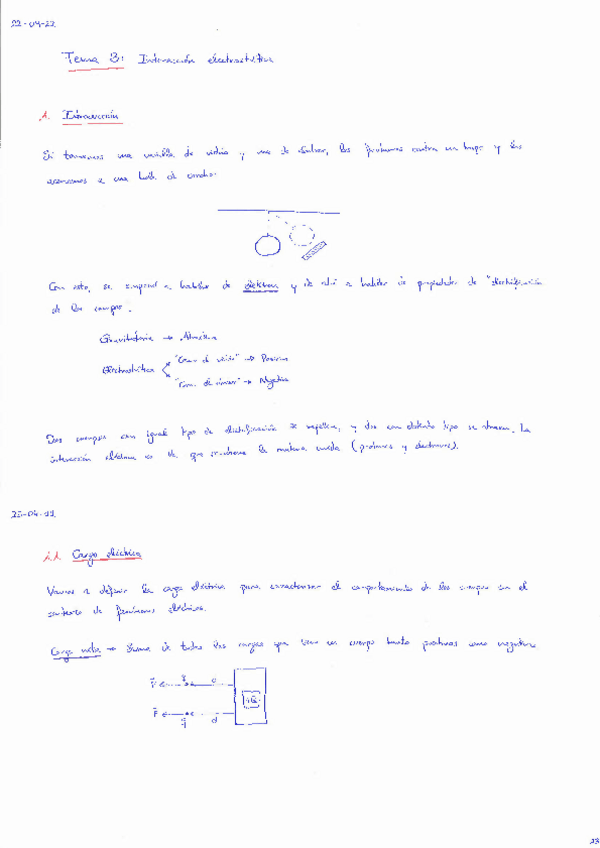 22-04-22
Tema 3: Interacción electrostática
1. Introducción
Si tenemos una varilla de vidrio y una de ámbar, las frotamos contra un trapo y las
acercamos a una bola de corcho:
Con esto, se empezó a hablar de eléktron y de ahí a hablar de propiedades de "electrificación
de los cuerpos".
Gravitatoria → Atractiva
Electrostática
"Com. de vidrio" → Positivo
"Com. de ámbar" → Negativo
Dos cuerpos con igual tipo de electrificación se repelen, y dos con distinto tipo se atraen. La
interacción eléctrica es la que mantiene la materia unida (protones y electrones).
25-04-22
1.1 Carga eléctrica
Vamos a definir la carga eléctrica para caracterizar el comportamiento de los cuerpos en el
contexto de fenómenos eléctricos.
Carga neta → Suma de todas las cargas que tiene un cuerpo tanto positivas como negativas
F q d
+Q
F q d
23